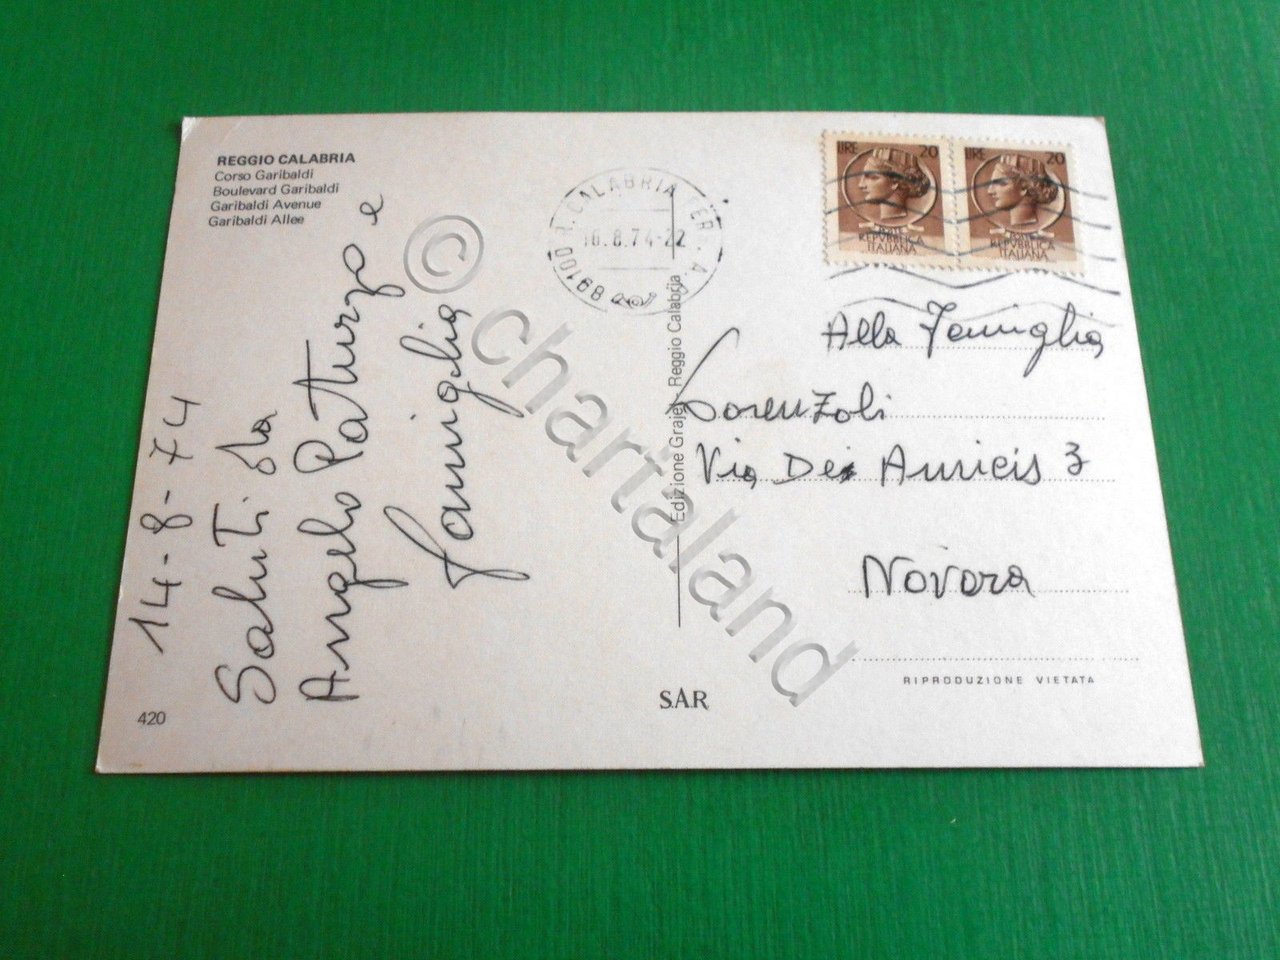 REGGIO CALABRIA
Corso Garibaldi
Boulevard Garibaldi
Garibaldi Avenue
Garibaldi Allee
14-8-74
Saluti da
Angelo Patturzo e
famiglia
420
89100 R. CALABRIA FERR. A.D.
16.8.74-22
Edizione Grajel - Reggio Calabria
SAR
LIRE 20
POSTE
REPVBBLICA
ITALIANA
LIRE 20
POSTE
REPVBBLICA
ITALIANA
Alla Famiglia
Lorenzoli
Via Dei Amicis 3
Novara
RIPRODUZIONE VIETATA
© chartaland